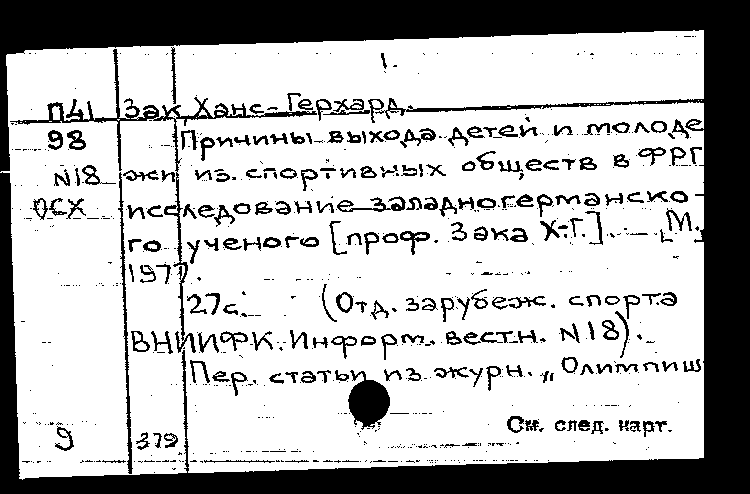 1.
П41 Зак, Ханс-Герхард.
98 Причины выхода детей и молоде
N18 жи из спортивных обществ в ФРГ
ОСХ исследование западногерманско-
го ученого [проф. Зака Х-Г.]. - [М.,
1977.
27с. (Отд. зарубеж. спорта
ВНИИФК. Информ. вестн. N18).
Пер. статьи из журн. „Олимпиш
См. след. карт.
9 379